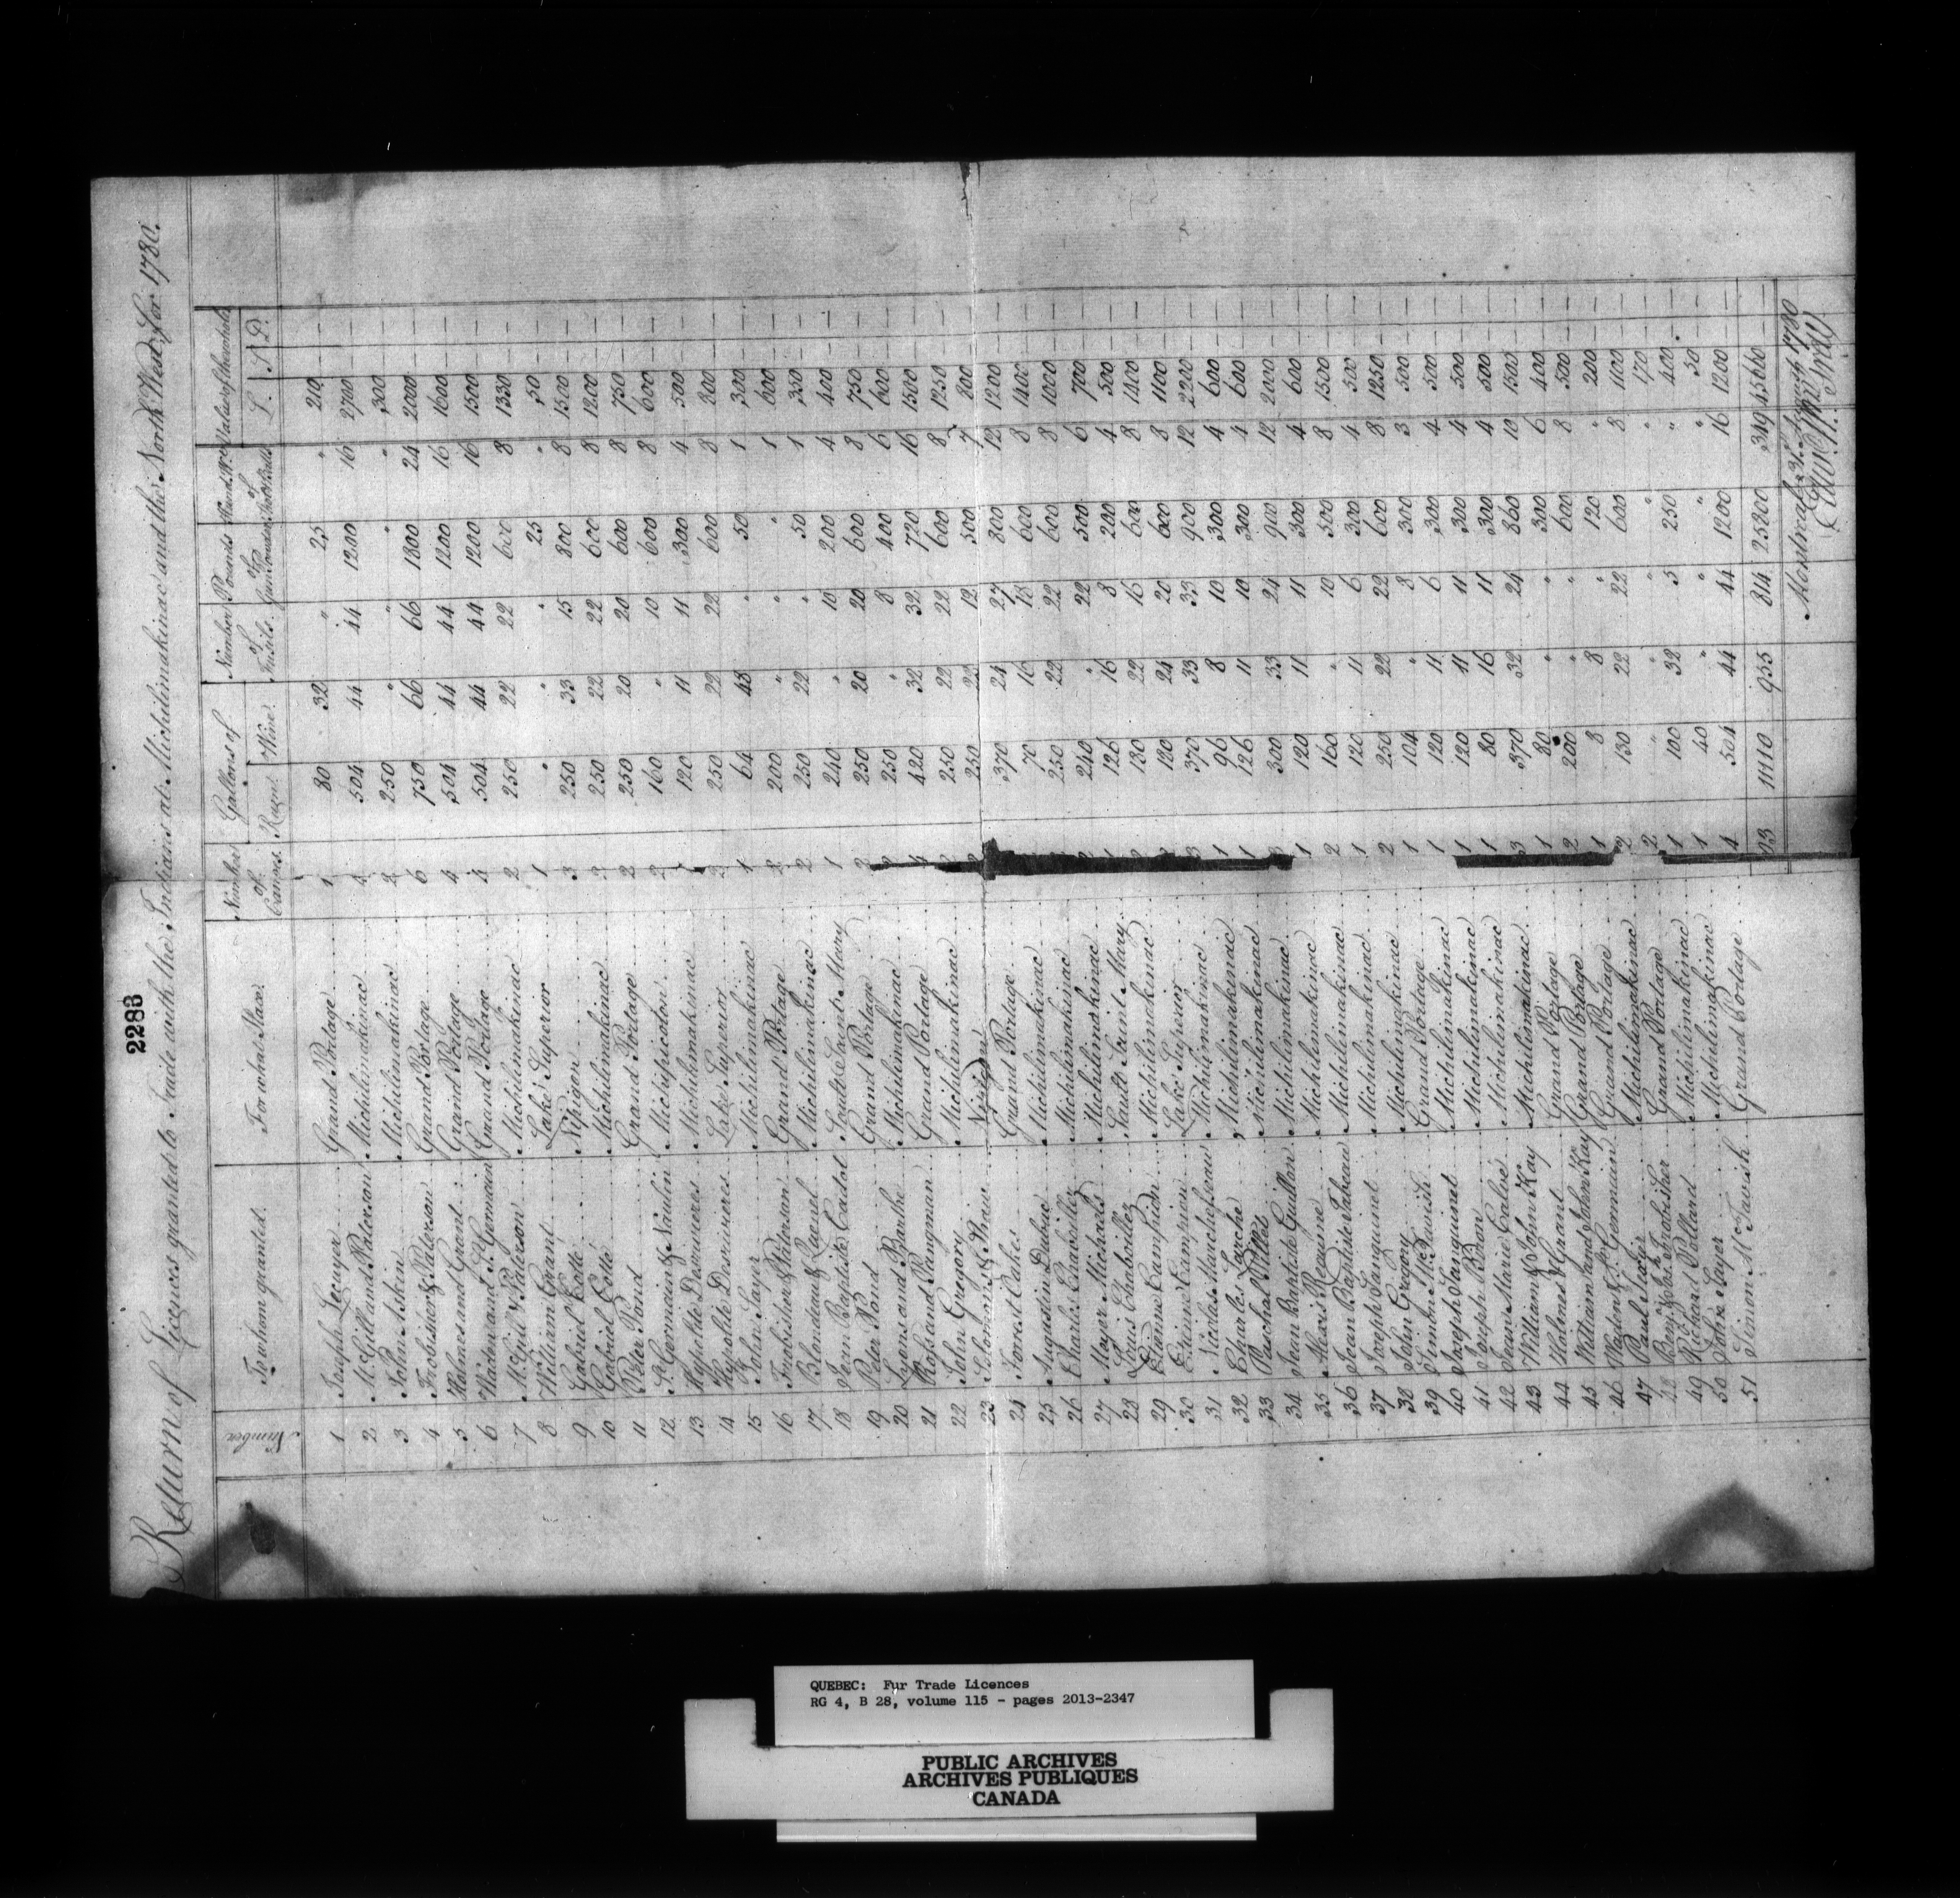 2283
Return of Licences granted to Trade with the Indians at Michilimakinac and the North West for 1780.
Number | To whom granted | For what Place | Number of Canoes | Gallons of Rum | Wine | Number of Fusils | Pounds of Gun Powder | Hund. Wt. of Shot & Ball | Value of the whole L. S. D.
1 Joseph Lecuyer Grand Portage 1 80 32 " 25 " 210 — —
2 McGill and Paterson Michilimakinac 4 504 44 44 1200 16 2700 — —
3 John Askin Michilimakinac 2 250 " " " " 300 — —
4 Frobisher & Paterson Grand Portage 6 750 66 66 1800 24 2000 — —
5 Holmes and Grant Grand Portage 4 504 44 44 1200 16 1600 — —
6 Waden and St. Germain Grand Portage 4 504 44 44 1200 16 1500 — —
7 McGill & Paterson Michilimakinac 2 250 22 22 600 8 1350 — —
8 William Grant Lake Superior 1 " " " 25 " 50 — —
9 Gabriel Cotté Nipigon 3 250 33 15 800 8 1500 — —
10 Gabriel Cotté Michilimakinac 250 22 22 600 8 1200 — —
11 Peter Pond Grand Portage 2 250 20 20 600 8 750 — —
12 St. Germain & Naulin Michipicoton 2 160 " 10 600 8 600 — —
13 Hypolite Desrivieres Michilimakinac 120 11 11 300 4 500 — —
14 Hypolite Desrivieres Lake Superior 250 22 22 600 8 800 — —
15 John Sayer Michilimakinac 1 64 48 " 50 1 300 — —
16 Frobisher & Paterson Grand Portage 2 200 " " " 1 600 — —
17 Blondeau & Michilimakinac 2 250 22 " 50 1 350 — —
18 Jean Baptiste Cadot Sault Saint Mary 1 240 " 10 200 4 400 — —
19 Peter Pond Grand Portage 2 250 20 20 600 8 750 — —
20 Lyons and Barthe Michilimakinac 250 " 8 400 6 600 — —
21 Ross and Pangman Grand Portage 4 420 32 32 720 16 1500 — —
22 John Gregory Michilimakinac 250 22 22 600 8 1250 — —
23 Solomons & Nipigon 250 22 12 500 7 800 — —
24 Forrest Oakes Grand Portage 370 24 27 800 12 1200 — —
25 Augustin Dubuc Michilimakinac 70 16 18 600 8 1400 — —
26 Charles Chaboillez Michilimakinac 250 22 22 600 8 1000 — —
27 Mayer Michaels Michilimakinac 240 " 22 500 6 700 — —
28 Louis Chaboillez Sault Saint Mary 126 16 8 200 4 500 — —
29 Etienne Campion Michilimakinac 130 22 15 600 8 1400 — —
30 Etienne Campion Lake Superior 120 24 20 600 8 1100 — —
31 Nicolas Marchesseau Michilimakinac 3 370 33 33 900 12 2200 — —
32 Charles Larche Michilimakinac 1 96 8 10 300 4 600 — —
33 Paschal Pillet Michilimakinac 1 126 11 10 300 4 600 — —
34 Jean Baptiste Guillon Michilimakinac 3 300 33 24 900 12 2000 — —
35 Alexis Reaume Michilimakinac 1 120 11 11 300 4 600 — —
36 Jean Baptiste Tabeau Michilimakinac 2 160 " 10 500 8 1500 — —
37 Joseph Sanguinet Michilimakinac 1 120 11 6 300 4 500 — —
38 John Gregory Michilimakinac 2 250 22 22 600 8 1250 — —
39 Simon McTavish Grand Portage 1 104 " 8 300 3 500 — —
40 Joseph Sanguinet Michilimakinac 1 120 11 6 300 4 500 — —
41 Joseph Michilimakinac 1 120 11 11 300 4 500 — —
42 Jean Marie Calvé Michilimakinac 1 80 16 11 300 4 500 — —
43 William & John Kay Michilimakinac 3 370 32 24 860 10 1500 — —
44 Holmes & Grant Grand Portage 1 80 " " 300 6 400 — —
45 William and John Kay Grand Portage 2 200 " " 600 8 500 — —
46 Waden & St. Germain Grand Portage 1 8 8 " 120 " 200 — —
47 Paul Michilimakinac 2 130 22 22 600 8 1100 — —
48 Benj. & Jos. Frobisher Grand Portage 2 " " " " " 170 — —
49 Richard Dobie Michilimakinac 1 100 32 5 250 " 400 — —
50 John Sayer Michilimakinac 1 40 " " " " 50 — —
51 Simon McTavish Grand Portage 4 504 44 44 1200 16 1200 — —
93 11110 955 814 25800 349 45660 — —
Montreal 31 August 1780
Edw. Wm. Gray
QUEBEC: Fur Trade Licences
RG 4, B 28, volume 115 - pages 2013-2347
PUBLIC ARCHIVES
ARCHIVES PUBLIQUES
CANADA